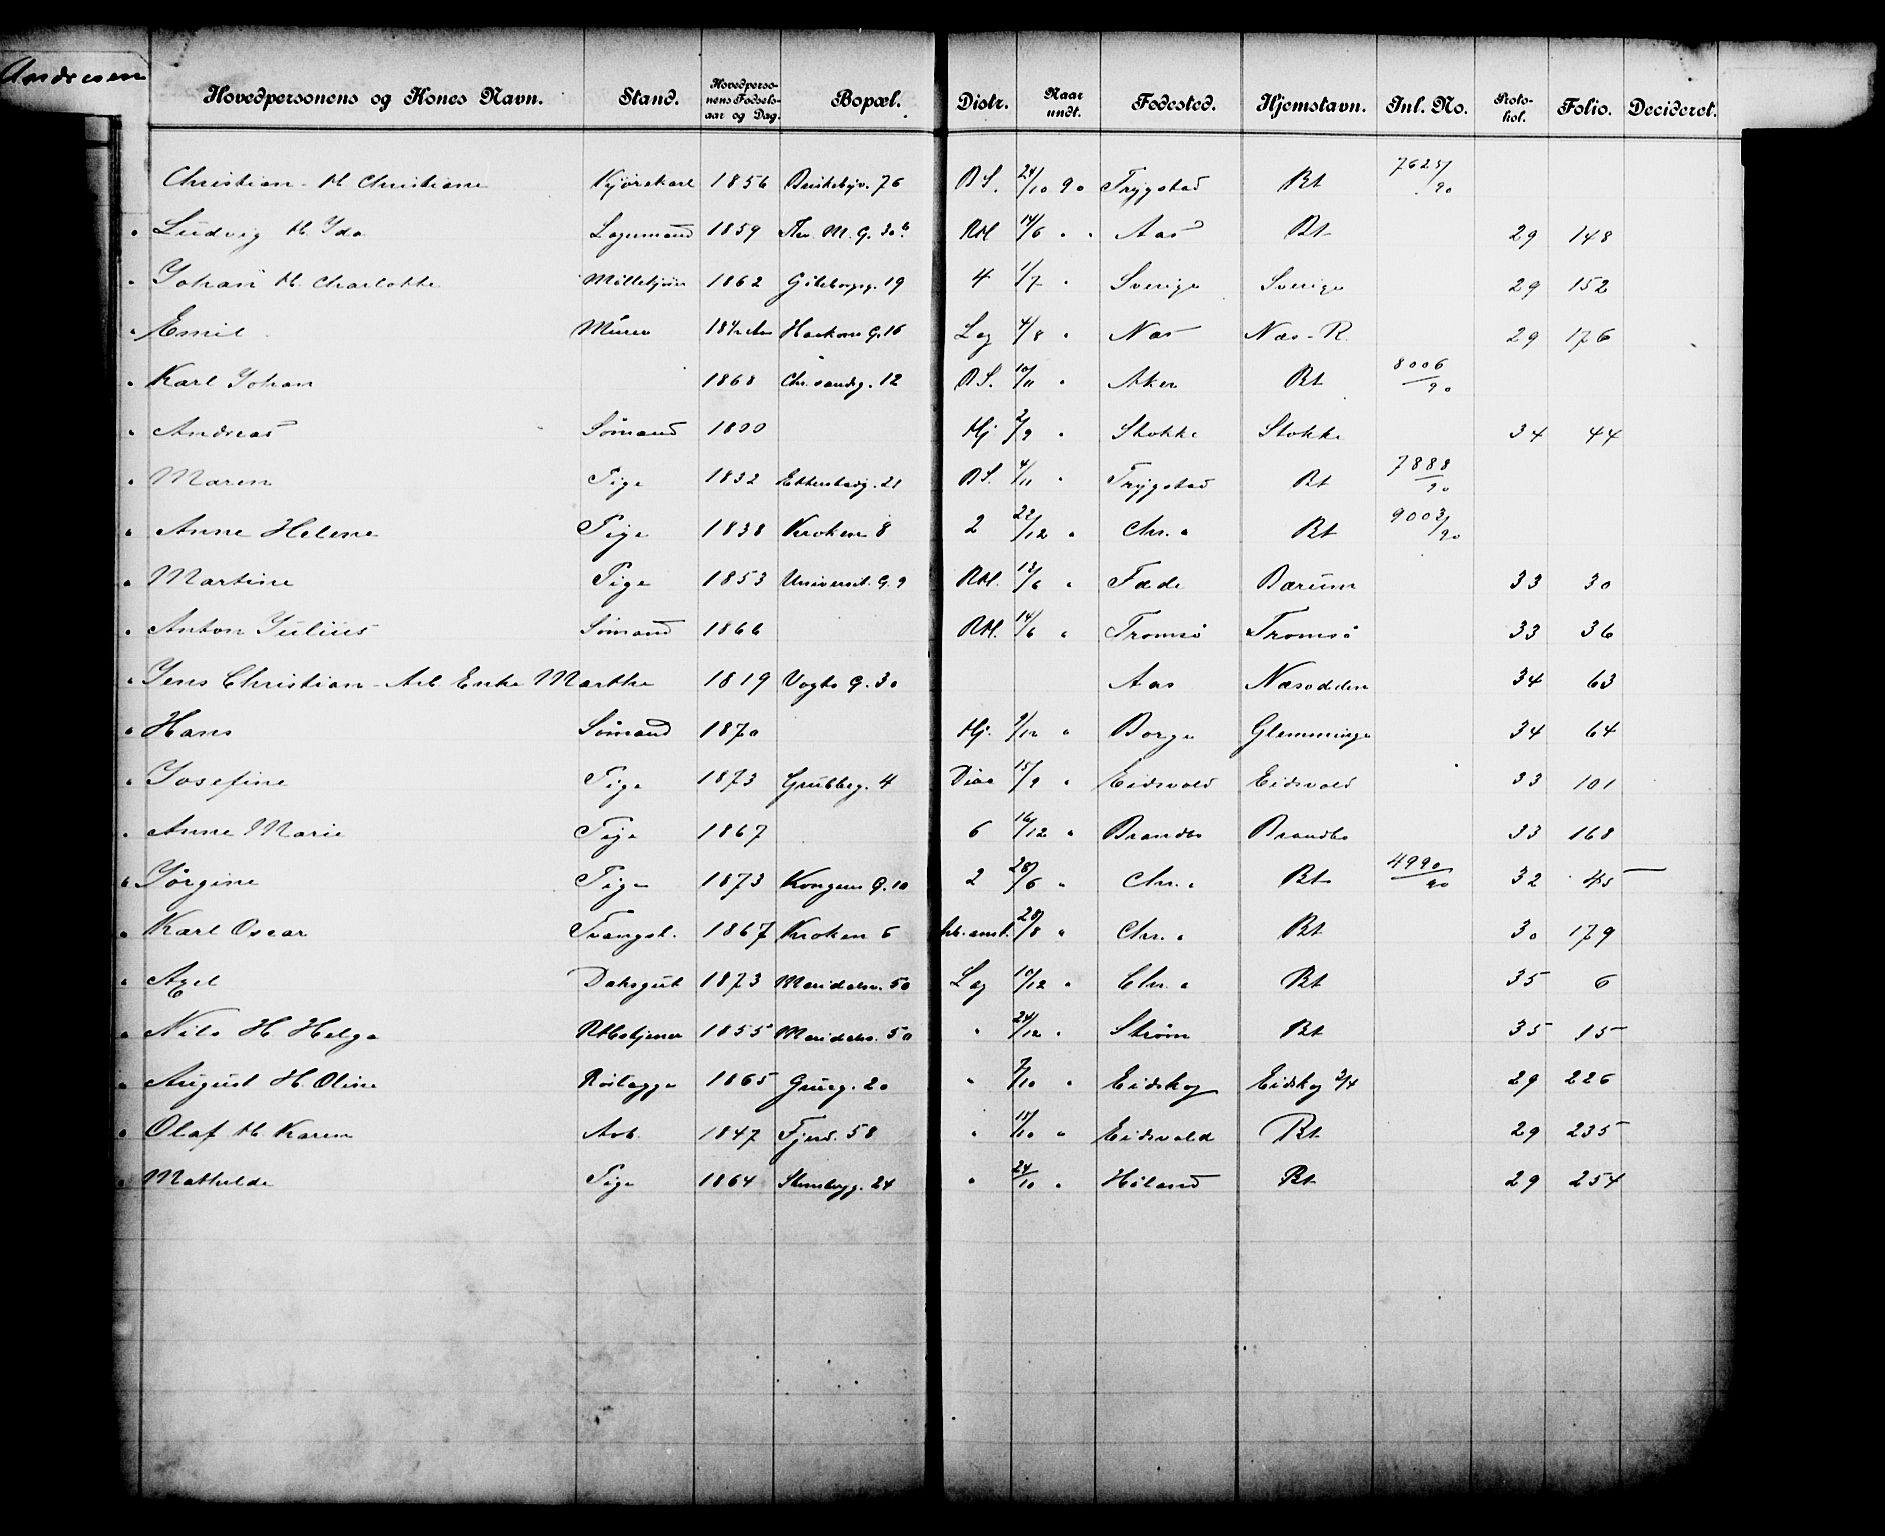 Andresen
Hovedpersonens og Kones Navn. Stand. Hovedpersonens Fødselsaar og Dag. Bopæl. Distr. Naar undt. Fødested. Hjemstavn. Inl. No. Protokol. Folio. Decideret.
Christian H Christiane Kjørekarl 1856 76 B S. 24/10 90 Trygstad Bt 7625/90
" Ludvig H. Ida Lagemand 1859 RH 14/6 " " Aas Bt 29 148
" Johan H Charlotte 1862 Göteborgg. 19 4 1/7 " Sverige Sverige 29 152
" Emil Murer Haakons G. 16 Lag 4/8 " Næs Næs - R. 29 176
" Karl Johan 1868 Chr.sandsg. 12 B S. 10/11 " Aker Bt 8006/90
" Andreas Sømand 1800 Hj 2/9 " Stokke Stokke 34 44
" Maren Pige 1832 Etterstadg. 21 B S. 4/11 " Trygstad Bt 7888/90
" Anne Helene Pige 1838 Kroken 8 2 22/12 " Chr. a Bt 9003/90
" Martine Pige 1853 Universit. G. 9 RH. 13/6 " Bærum 33 30
" Anton Julius Sømand 1866 RH. 14/6 " Tromsø Tromsø 33 36
" Jens Christian - Arb Enke Marthe 1819 Vogts G. 30 Aas Næsodden 34 63
" Hans Sømand 1870 Hj. 9/12 " Borge Glemminge 34 64
" Josefine Pige 1873 Grubbeg. 4 Diac 15/9 " Eidsvold Eidsvold 33 101
" Anne Marie Pige 1867 6 16/12 " Brandbo Brandbo 33 168
" Jørgine Pige 1873 Kongens G. 10 2 28/6 " Chr. a Bt 4990/90 32 45 —
" Karl Oscar Tvangst. 1867 Kroken 6 28/8 " Chr. a Bt 30 179
" Axel 1873 Maridalsv. 50 Lag 10/12 " Chr. a Bt 35 6
" Nils H Helga 1855 Maridalsv. 50 " 24/12 " Strøm Bt 35 15
" August H Oline 1865 Grueg. 20 " 7/10 " Eidskog Eidskog 29 226
" Olaf H. Karen Arb. 1847 Fjerd. 58 " 15/10 " Eidsvold Bt 29 235
" Mathilde Pige 1864 Stensbergg. 24 " 24/10 " Høland Bt 29 254